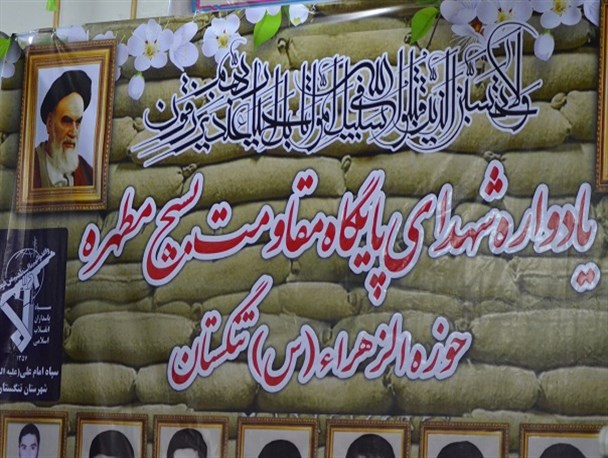 ولا تحسبن الذین قتلوا فی سبیل الله امواتا بل احیاء عند ربهم یرزقون
یادواره شهدای پایگاه مقاومت بسیج مطهره
حوزه الزهراء (س) تنگستان
سپاه
پاسداران
انقلاب
اسلامی
۱۳۵۷
سپاه امام علی (علیه
شهرستان تنگستان